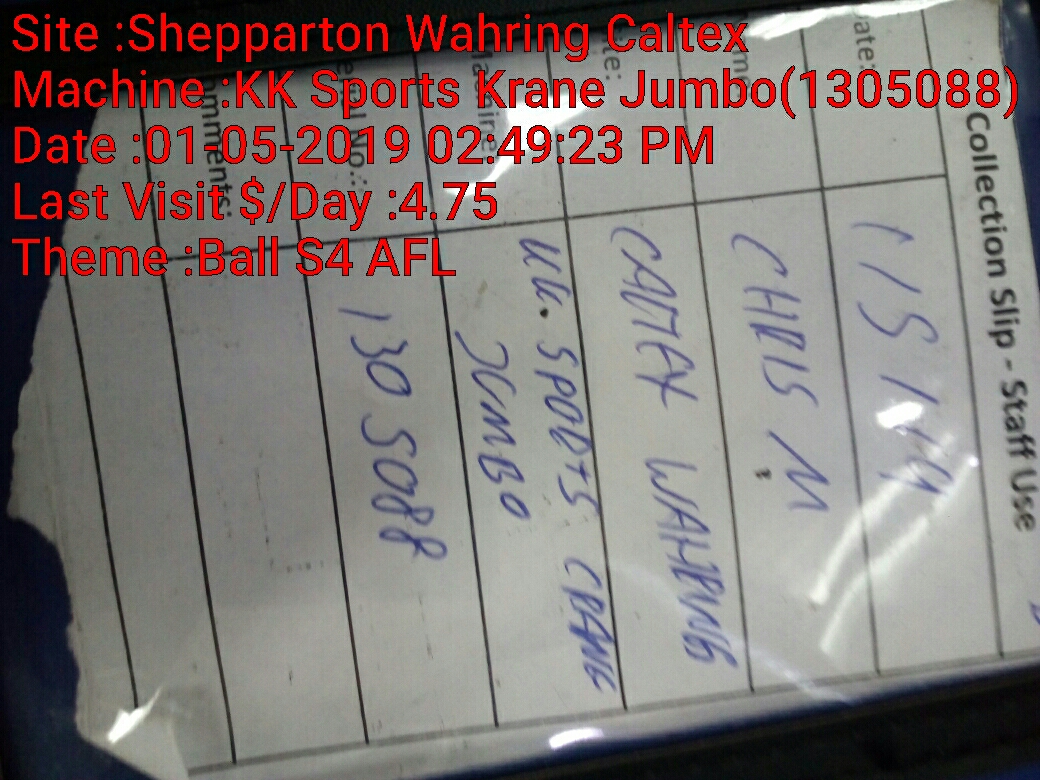 Site :Shepparton Wahring Caltex
Machine :KK Sports Krane Jumbo(1305088)
Date :01-05-2019 02:49:23 PM
Last Visit $/Day :4.75
Theme :Ball S4 AFL
Collection Slip - Staff Use
ate: 1/5/19
me CHRIS M
te: CALTEX WAHRING
achine KK. SPORTS CRANE
JUMBO
al No.: 1305088
omments: